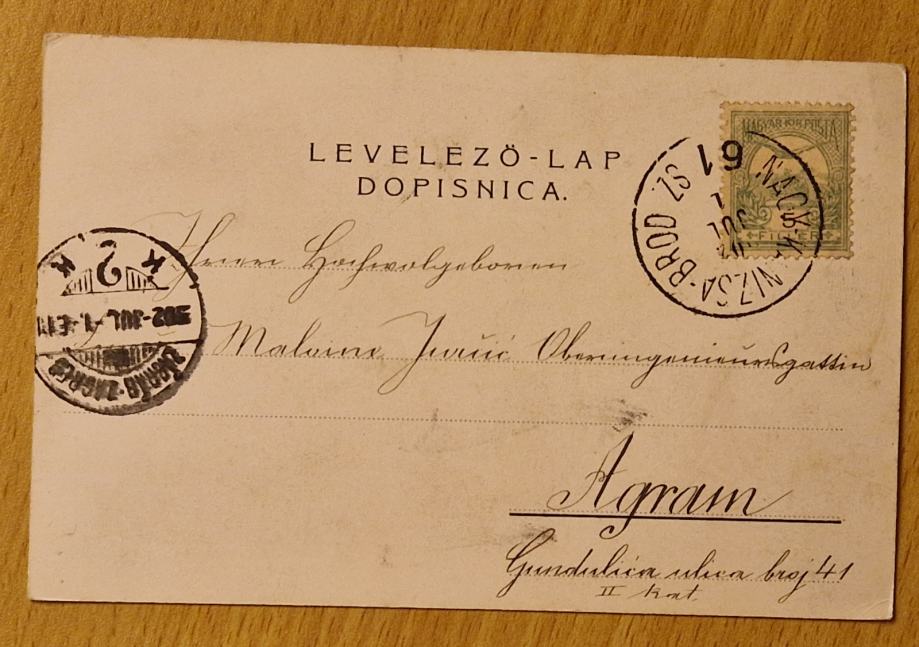 LEVELEZÖ-LAP
DOPISNICA.
MAGYAR KIR. POSTA
FILLÉR
NAGY-KANIZSA-BROD SZ
61
JUL
1
K 2 K
902-JUL-1
ZÁGRÁB-ZAGREB
Hochwolgeboren
Malvine Oberingenieursgattin
Agram
Gundulića ulica broj 41
II kat